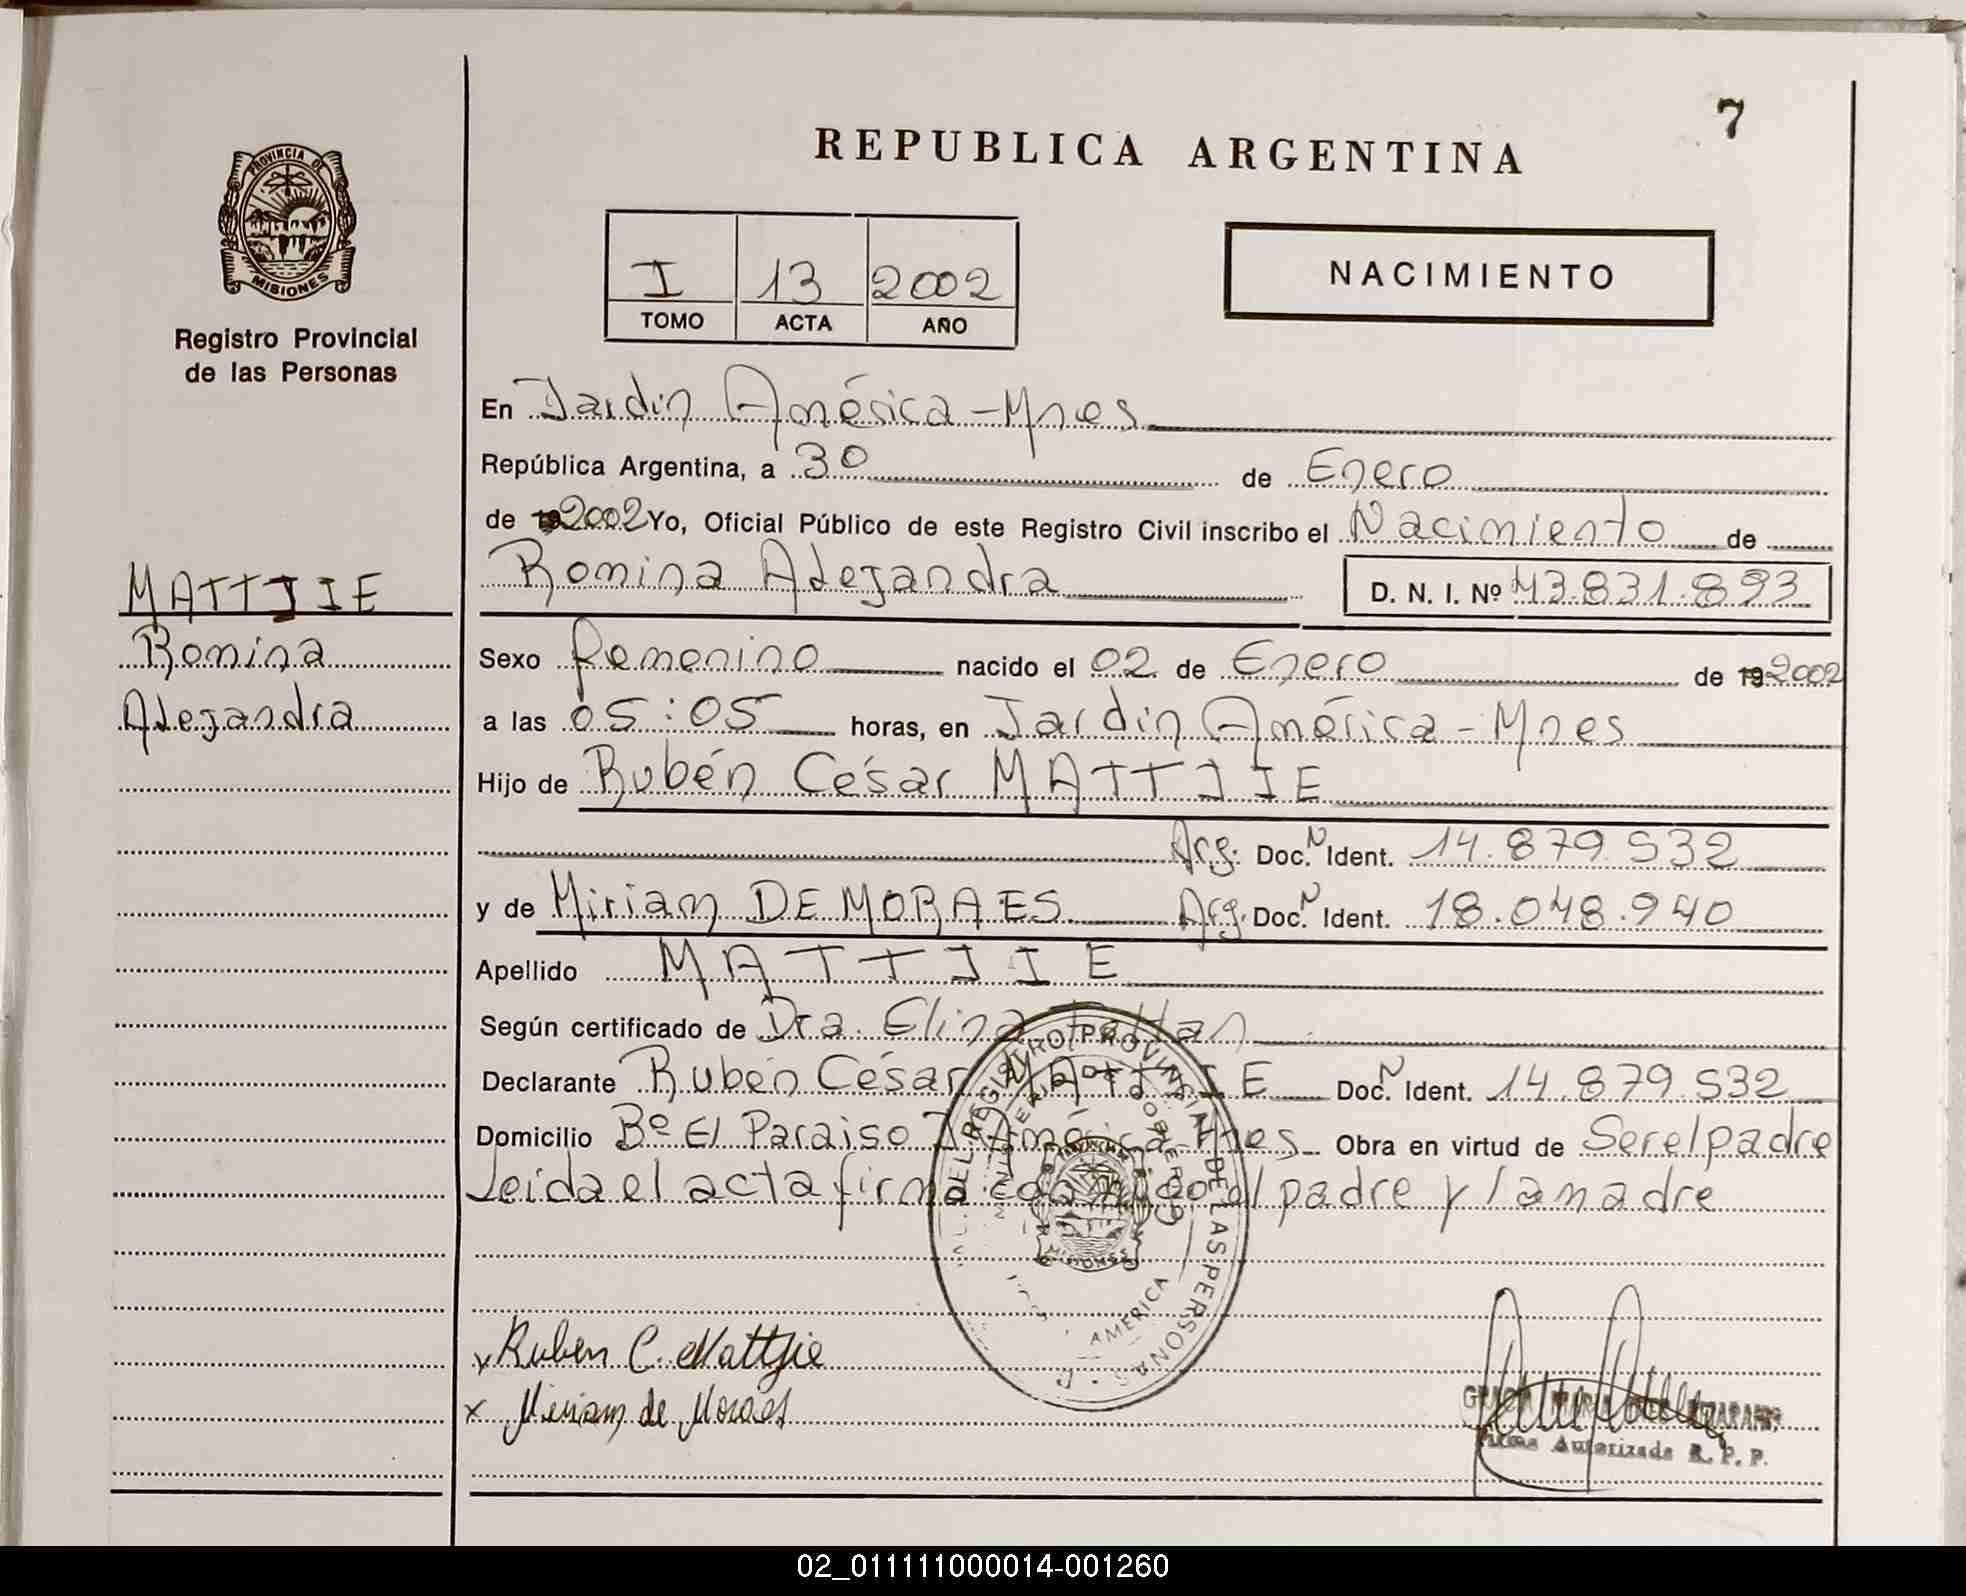 7
REPUBLICA ARGENTINA
PROVINCIA DE
MISIONES
Registro Provincial
de las Personas
I 13 2002
TOMO ACTA AÑO
NACIMIENTO
En Jardín América - Mnes
República Argentina, a 30 de Enero
de 19 2002 Yo, Oficial Público de este Registro Civil inscribo el Nacimiento de
Romina Alejandra D. N. I. Nº 43.831.893
MATTJIE
Romina
Alejandra
Sexo Femenino nacido el 02 de Enero de 19 2002
a las 05:05 horas, en Jardín América - Mnes
Hijo de Rubén César MATTJIE
Arg. Doc. N Ident. 14.879.532
y de Miriam DE MORAES Arg. Doc. N Ident. 18.048.940
Apellido MATTJIE
Según certificado de Dra. Elina
Declarante Rubén César MATTJIE Doc. N Ident. 14.879.532
Domicilio Bº El Paraiso J. América - Mnes Obra en virtud de Ser el padre
Leida el acta firma conmigo el padre y la madre
DEL REGISTRO PROVINCIAL DE LAS PERSONAS
AMERICA
MISIONES
x Ruben C. Mattjie
x Miriam de Moraes
Firma Autorizada R. P. P.
02_011111000014-001260